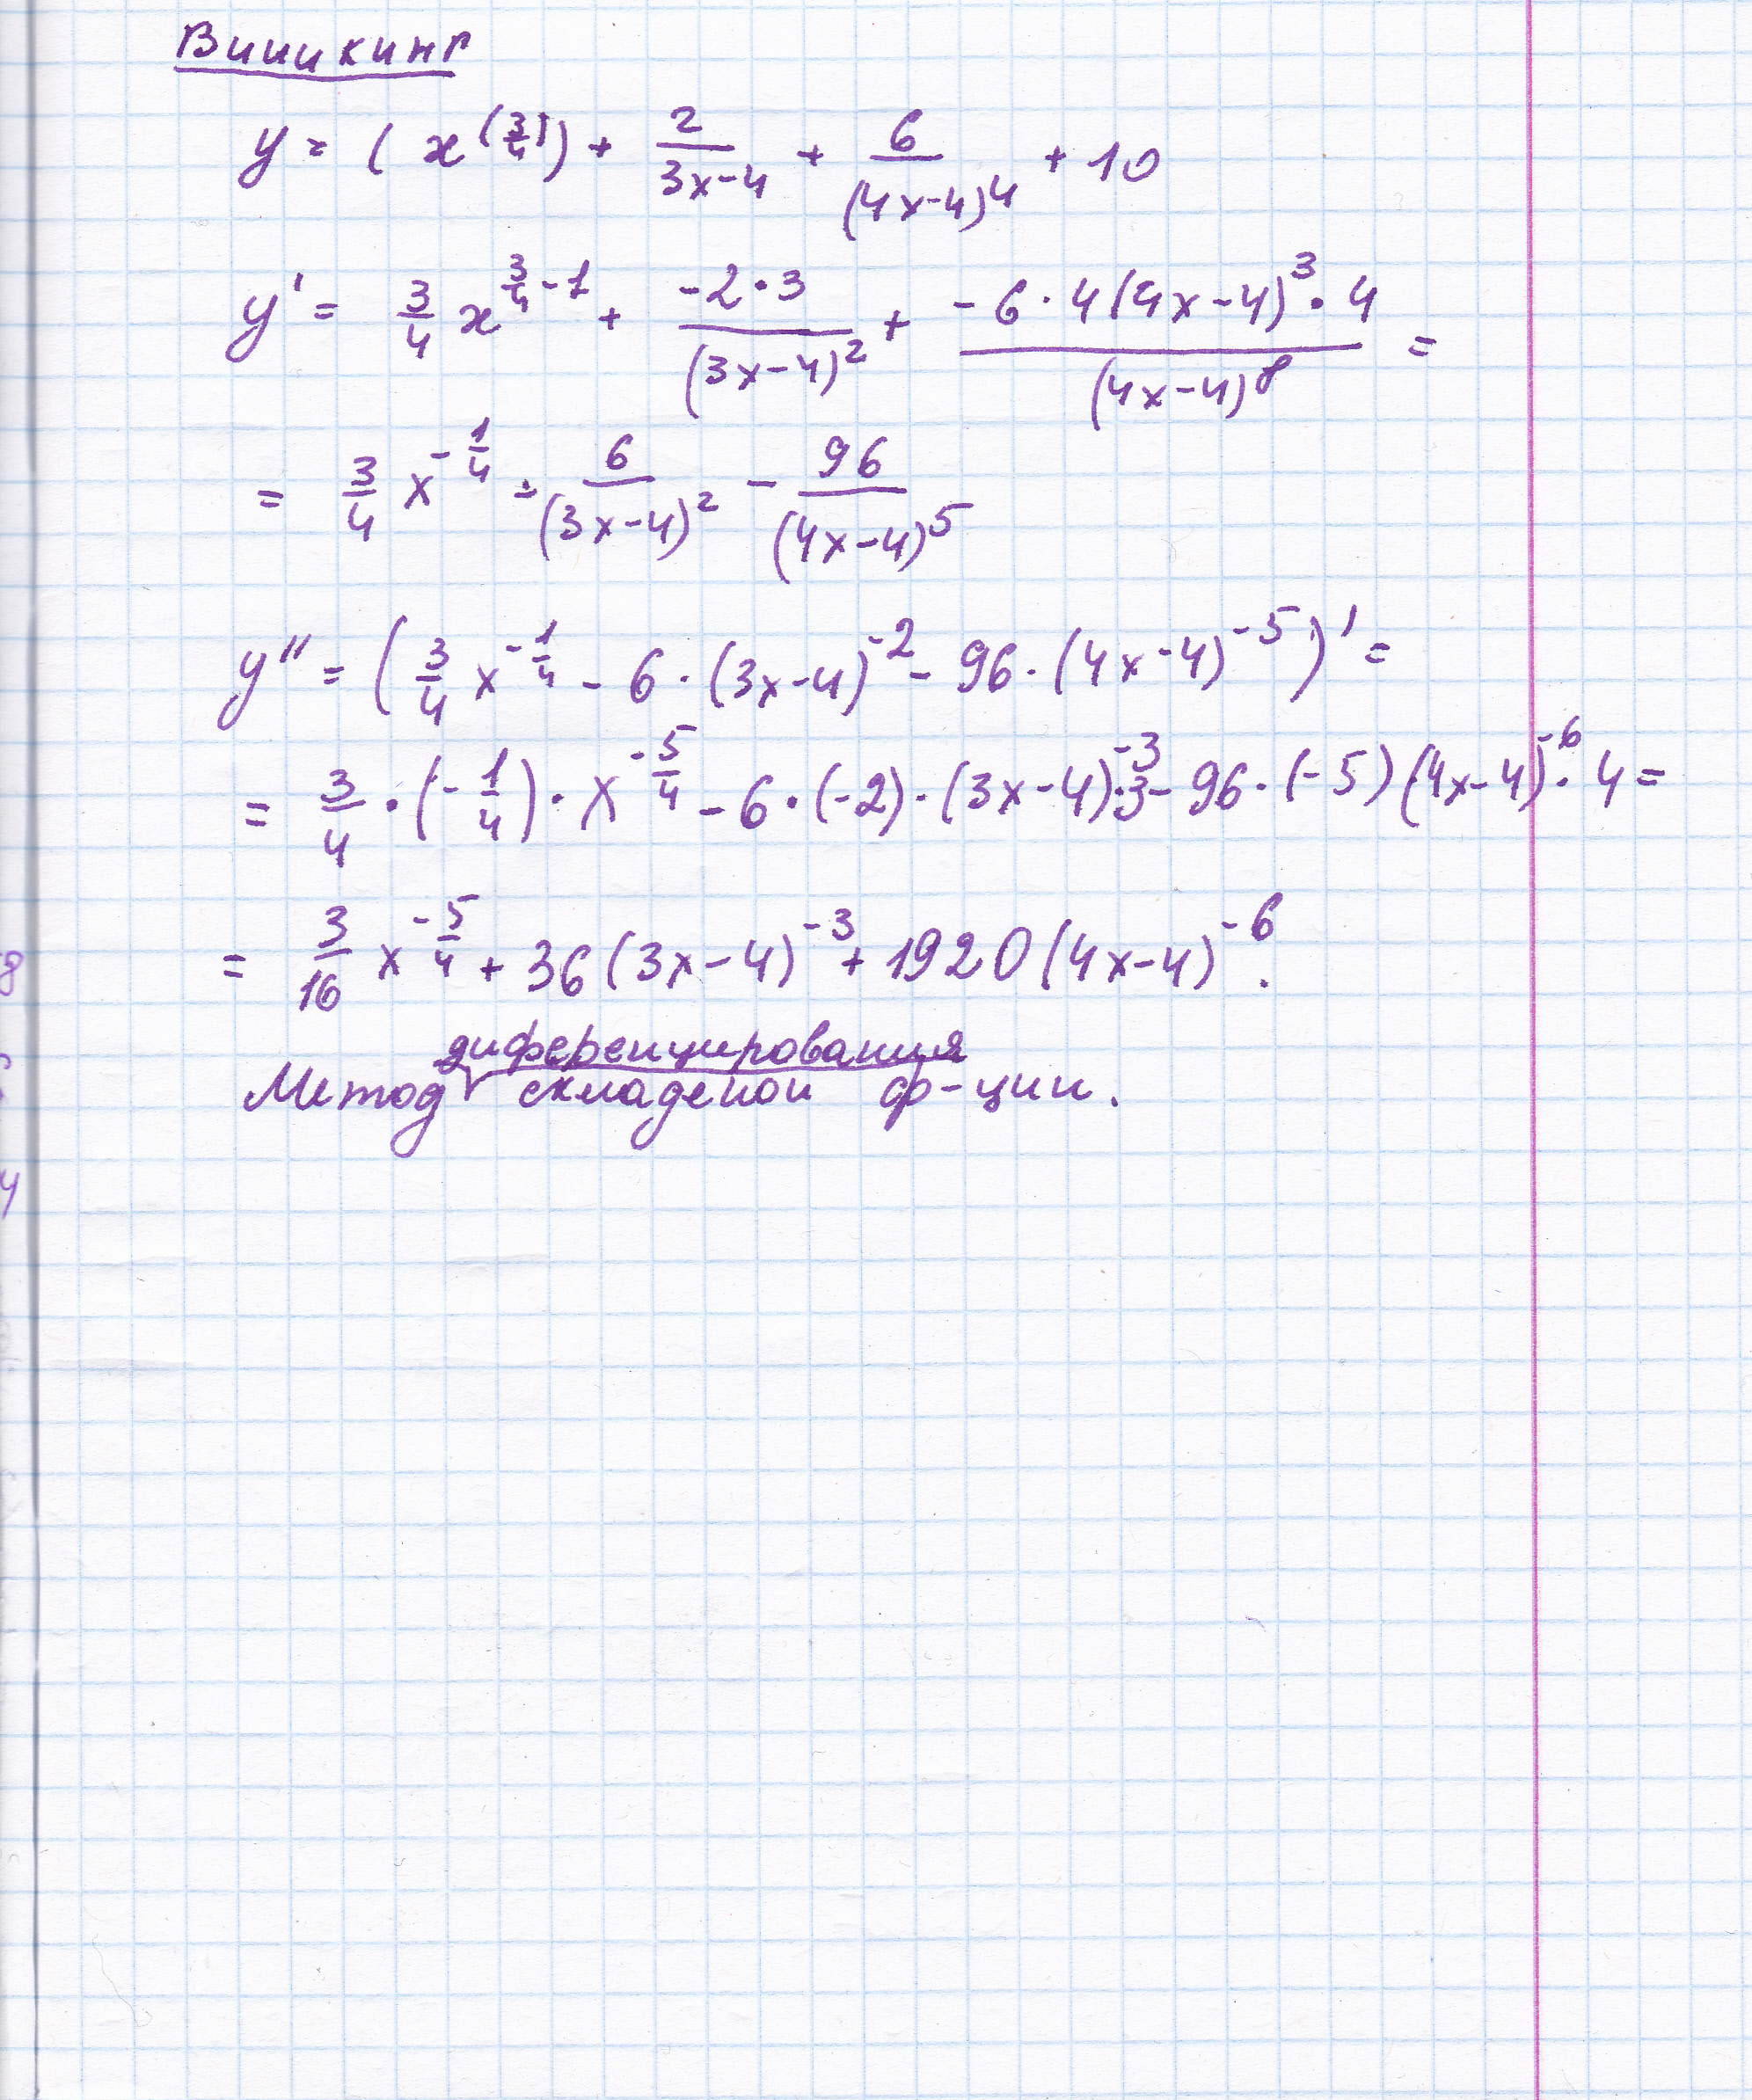 Виникинг
y = (x^(3/4)) + 2/(3x-4) + 6/(4x-4)^4 + 10
y' = 3/4 x^(3/4 - 1) + (-2·3)/(3x-4)^2 + (-6·4(4x-4)^3·4)/(4x-4)^8 =
= 3/4 x^(-1/4) - 6/(3x-4)^2 - 96/(4x-4)^5
y'' = (3/4 x^(-1/4) - 6·(3x-4)^(-2) - 96·(4x-4)^(-5))' =
= 3/4·(-1/4)·x^(-5/4) - 6·(-2)·(3x-4)^(-3)·3 - 96·(-5)(4x-4)^(-6)·4 =
= 3/16 x^(-5/4) + 36(3x-4)^(-3) + 1920(4x-4)^(-6).
диференцирования
Метод складеной ф-ции.
8
4